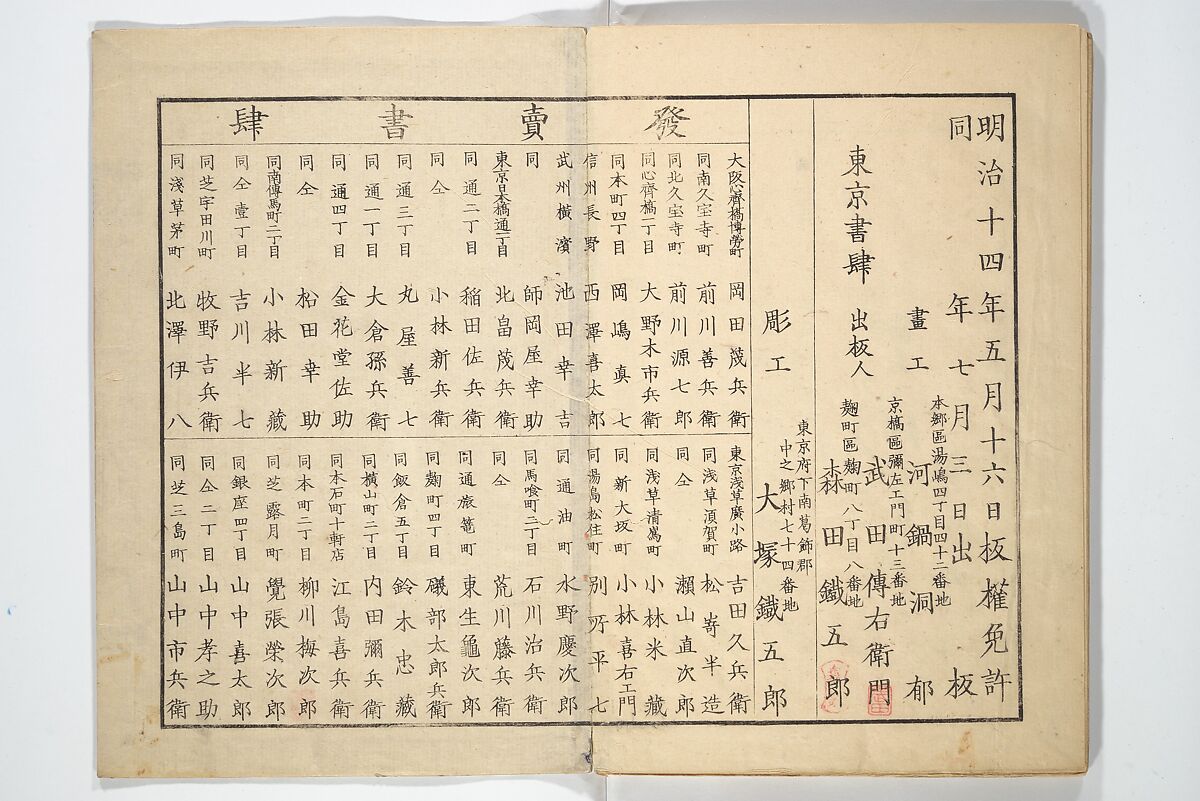 明治十四年五月十六日板權免許
同年七月三日出板
本郷區湯嶋四丁目四十二番地
畫工 河鍋洞郁
京橋區彌左エ門町十三番地
東京書肆 出板人 武田傳右衛門
麹町區麹町八丁目八番地
森田鐵五郎
東京府下南葛飾郡
中之郷村七十四番地
彫工 大塚鐵五郎
發賣書肆
大阪心齋橋博勞町 岡田茂兵衛
同南久宝寺町 前川善兵衛
同北久宝寺町 前川源七郎
同心齊橋一丁目 大野木市兵衛
同本町四丁目 岡嶋真七
信州長野 西澤喜太郎
武州横濱 池田幸吉
同 師岡屋幸助
東京日本橋通一丁目 北畠茂兵衛
同通二丁目 稲田佐兵衛
同仝 小林新兵衛
同通三丁目 丸屋善七
同通一丁目 大倉孫兵衛
同通四丁目 金花堂佐助
同仝 松田幸助
同南傳馬町二丁目 小林新藏
同仝壹丁目 吉川半七
同芝宇田川町 牧野吉兵衛
同淺草茅町 北澤伊八
東京浅草廣小路 吉田久兵衛
同浅草須賀町 松嵜半造
同仝 瀬山直次郎
同浅草清嶌町 小林米藏
同新大坂町 小林喜右エ門
同湯島松住町 別所平七
同通油町 水野慶次郎
同馬喰町二丁目 石川治兵衛
同仝 荒川藤兵衛
同通旅篭町 東生龜次郎
同麹町四丁目 礒部太郎兵衛
同飯倉五丁目 鈴木忠藏
同横山町二丁目 内田彌兵衛
同本石町十軒店 江島喜兵衛
同本町二丁目 柳川梅次郎
同芝露月町 覺張榮次郎
同銀座四丁目 山中喜太郎
同仝二丁目 山中孝之助
同芝三島町 山中市兵衛